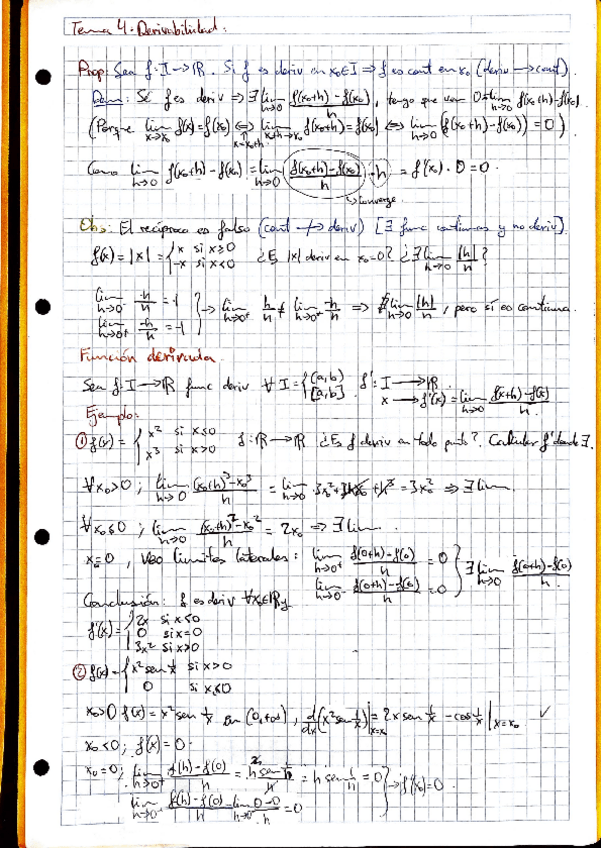 Tema 4. Derivabilidad.
Prop: Sea f: I→ℝ. Si f es deriv en x₀∈I ⇒ f es cont en x₀ (deriv → cont).
Dem: Si f es deriv ⇒ ∃ lim_{h→0} (f(x₀+h)-f(x₀))/h, tengo que ver 0 = lim_{h→0} f(x₀+h)-f(x₀)
(Porque lim_{x→x₀} f(x)=f(x₀) ⇔_{x=x₀+h} lim_{x₀+h→x₀} f(x₀+h)=f(x₀) ⇔ lim_{h→0} (f(x₀+h)-f(x₀)) = 0)
Como lim_{h→0} f(x₀+h)-f(x₀) = lim_{h→0} (f(x₀+h)-f(x₀))/h · h = f'(x₀) · 0 = 0.
↳ Converge
Obs: El recíproco es falso (cont ↛ deriv) [∃ func continuas y no deriv].
f(x) = |x| = { x si x≥0
-x si x<0 ¿Es |x| deriv en x₀=0? ¿∃ lim_{h→0} |h|/h?
lim_{h→0⁻} -h/h = -1
lim_{h→0⁺} h/h = -1 } → lim_{h→0⁺} h/h ≠ lim_{h→0⁻} -h/h ⇒ ∄ lim_{h→0} |h|/h, pero sí es continua.
Función derivada
Sea f: I→ℝ func deriv ∀ I = { (a,b)
[a,b] f': I→ℝ
x → f'(x) = lim_{h→0} (f(x+h)-f(x))/h
Ejemplo:
① f(x) = { x² si x≤0
x³ si x>0 f: ℝ→ℝ ¿Es f deriv en todo punto? Calcular f' donde ∃.
∀x₀>0; lim_{h→0} ((x₀+h)³-x₀³)/h = lim_{h→0} 3x₀²+3hx₀+h² = 3x₀² ⇒ ∃ lim.
∀x₀≤0; lim_{h→0} ((x₀+h)²-x₀²)/h = 2x₀ ⇒ ∃ lim.
x₀=0, veo límites laterales: lim_{h→0⁺} (f(0+h)-f(0))/h = 0
lim_{h→0⁻} (f(0+h)-f(0))/h = 0 } ∃ lim_{h→0} (f(0+h)-f(0))/h.
Conclusión: f es deriv ∀x₀∈ℝ y
f'(x) = { 2x si x<0
0 si x=0
3x² si x>0
② f(x) = { x² sen 1/x si x>0
0 si x≤0
x₀>0 f(x) = x² sen 1/x en (0,+∞), d/dx (x² sen 1/x)|_{x=x₀} = 2x sen 1/x - cos 1/x |_{x=x₀} ✓
x₀<0; f'(x) = 0.
x₀=0; lim_{h→0⁺} (f(h)-f(0))/h = h² sen 1/h / h = h sen 1/h = 0
lim_{h→0⁻} (f(h)-f(0))/h = lim_{h→0⁻} (0-0)/h = 0 } → f'(x₀)=0.